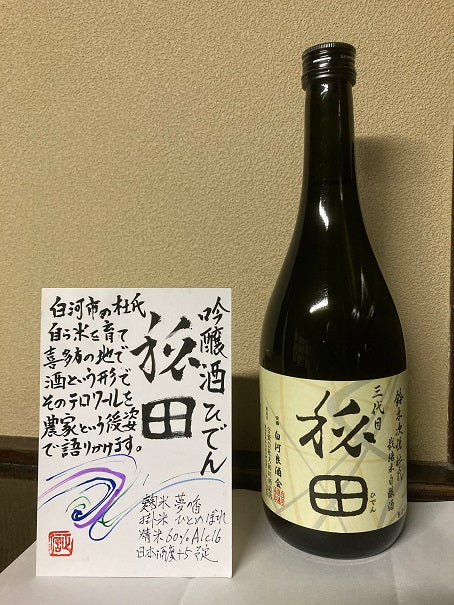 吟醸酒ひでん
秘田
白河市の杜氏
自ら米を育て
喜多方の地で
酒という形で
そのテロワールを
農家という後姿
で語りかけます。
麹米 夢の香
掛米 ひとめぼれ
精米60% Alc16
日本酒度+5 予定
三代目
秘田
ひでん
白河良酒会
栽培米自醸酒